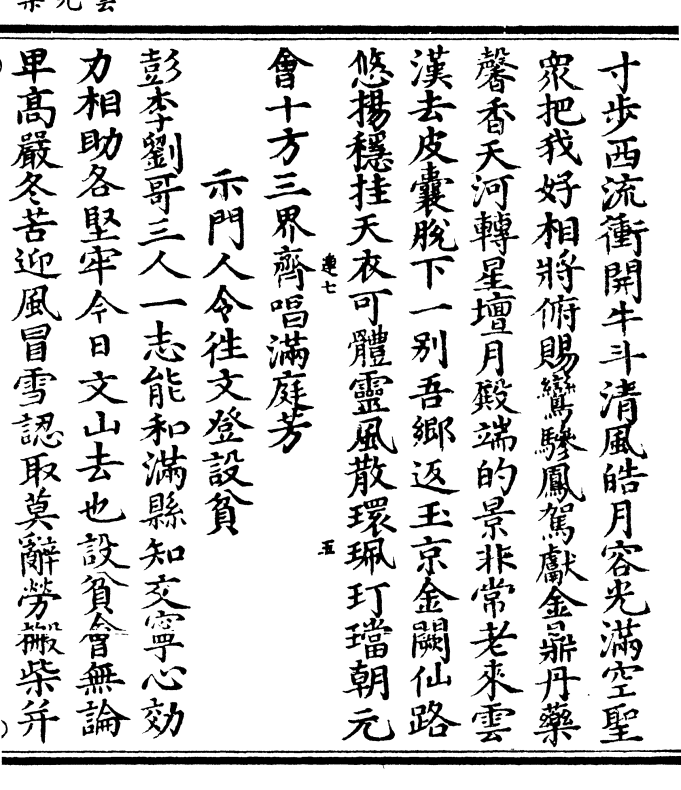 寸步西流衝開牛斗清風皓月容光滿空聖
衆把我好相將俯賜鸞驂鳳駕獻金鼎丹藥
馨香天河轉星壇月殿端的景非常老來雲
漢去皮囊脫下一别吾鄉返玉京金闕仙路
悠揚穩挂天衣可體靈風散環珮玎璫朝元
會十方三界齊唱滿庭芳
示門人令徃文登設貧
彭李劉哥三人一志能和滿縣知交寧心効
力相助各堅牢今日文山去也設貧會無論
卑高嚴冬苦迎風冒雪認取莫辭勞搬柴并
七
五